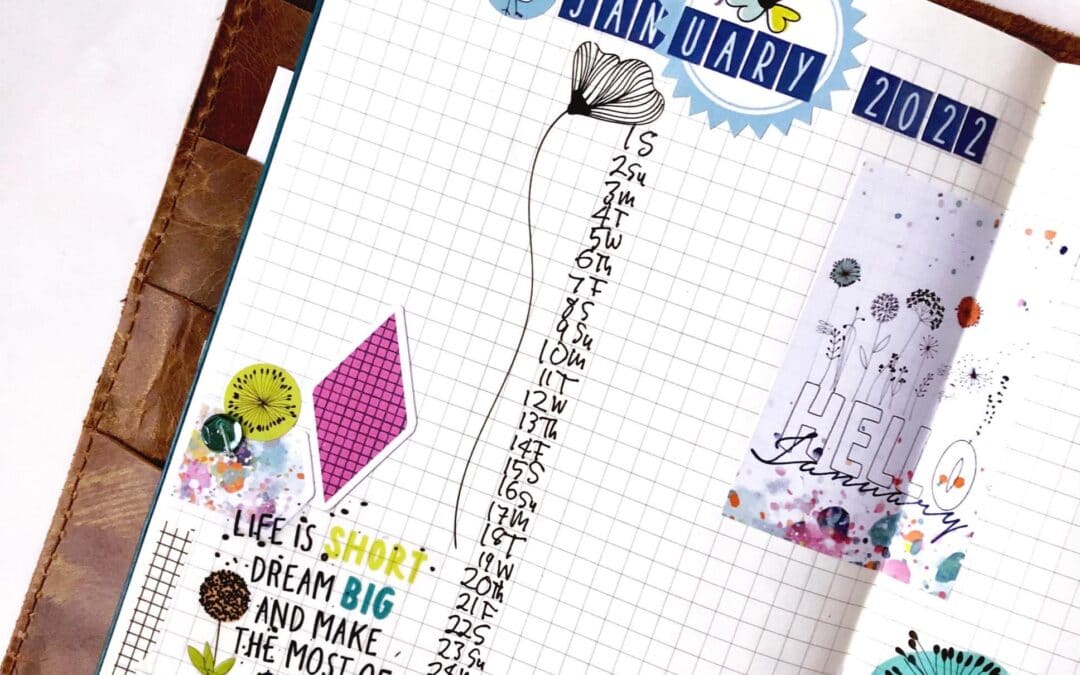 JANUARY
2022
1 S
2 Su
3 m
4 T
5 W
6 Th
7 F
8 S
9 Su
10 m
11 T
12 W
13 Th
14 F
15 S
16 Su
17 M
18 T
19 W
20 th
21 F
22 S
23 Su
HELLO
January
LIFE IS SHORT
DREAM BIG
AND MAKE
THE MOST OF